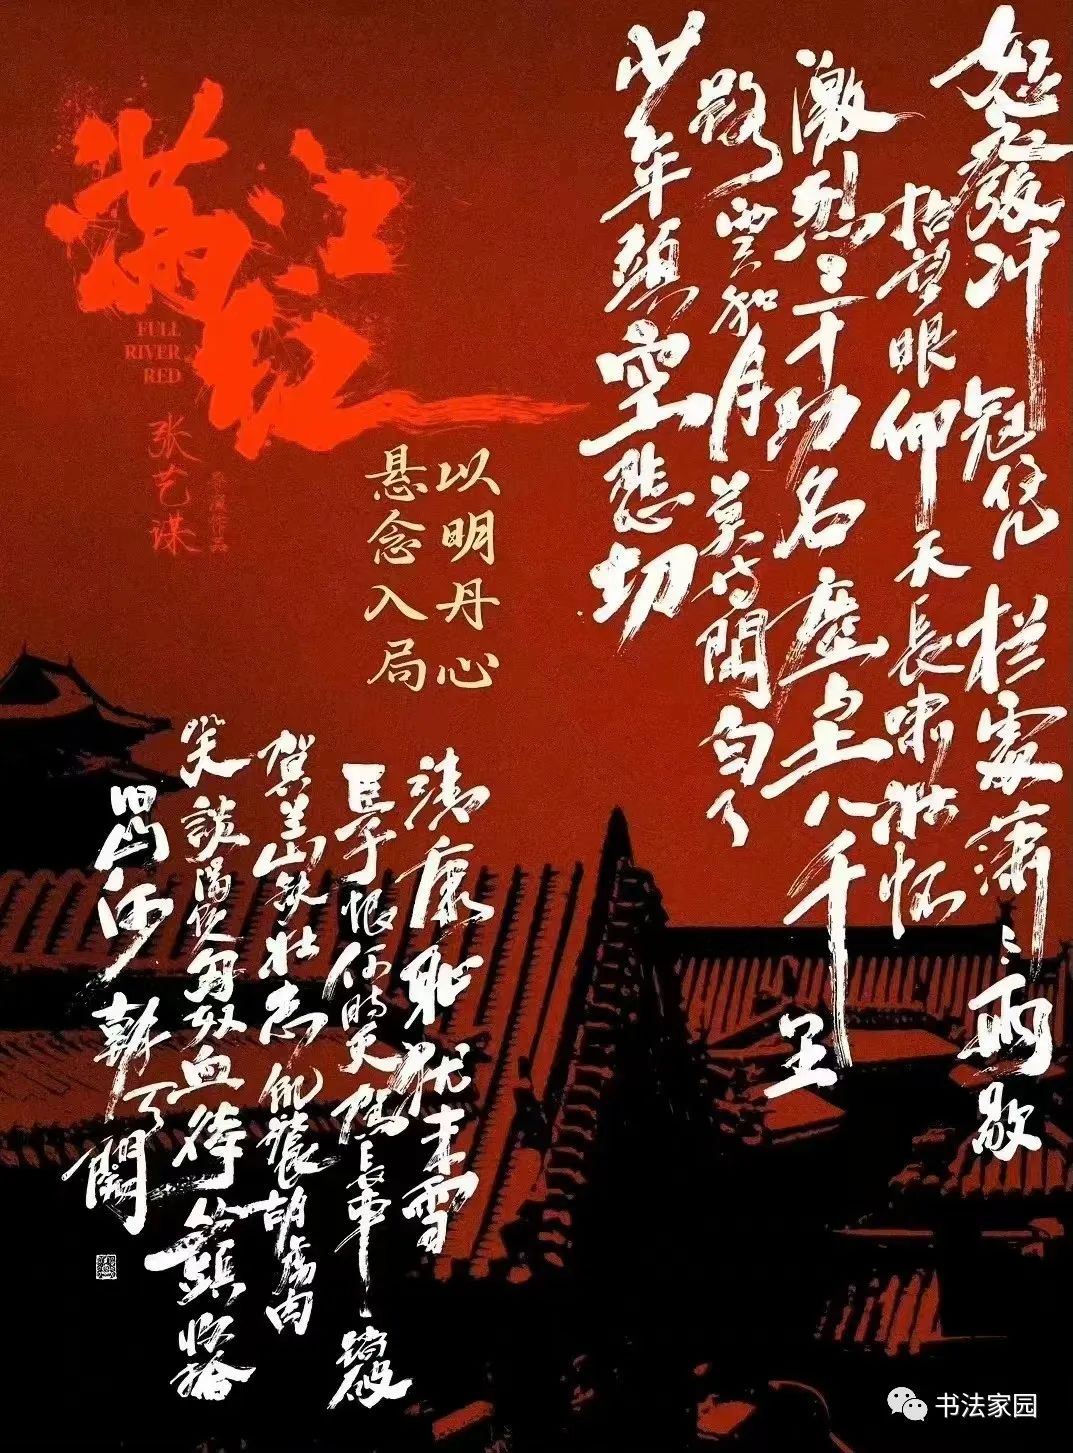 满江红
FULL
RIVER
RED
张艺谋
导演作品
以明丹心
悬念入局
怒髮冲冠凭栏處潇潇雨歇
抬望眼仰天長啸壮怀
激烈三十功名塵与土八千里
路雲和月莫等閒白了
少年頭空悲切
靖康耻犹未雪
臣子恨何時灭駕長車踏破
賀兰山缺壮志飢餐胡虏肉
笑談渴饮匈奴血待從頭收拾
旧山河朝天闕
书法家园